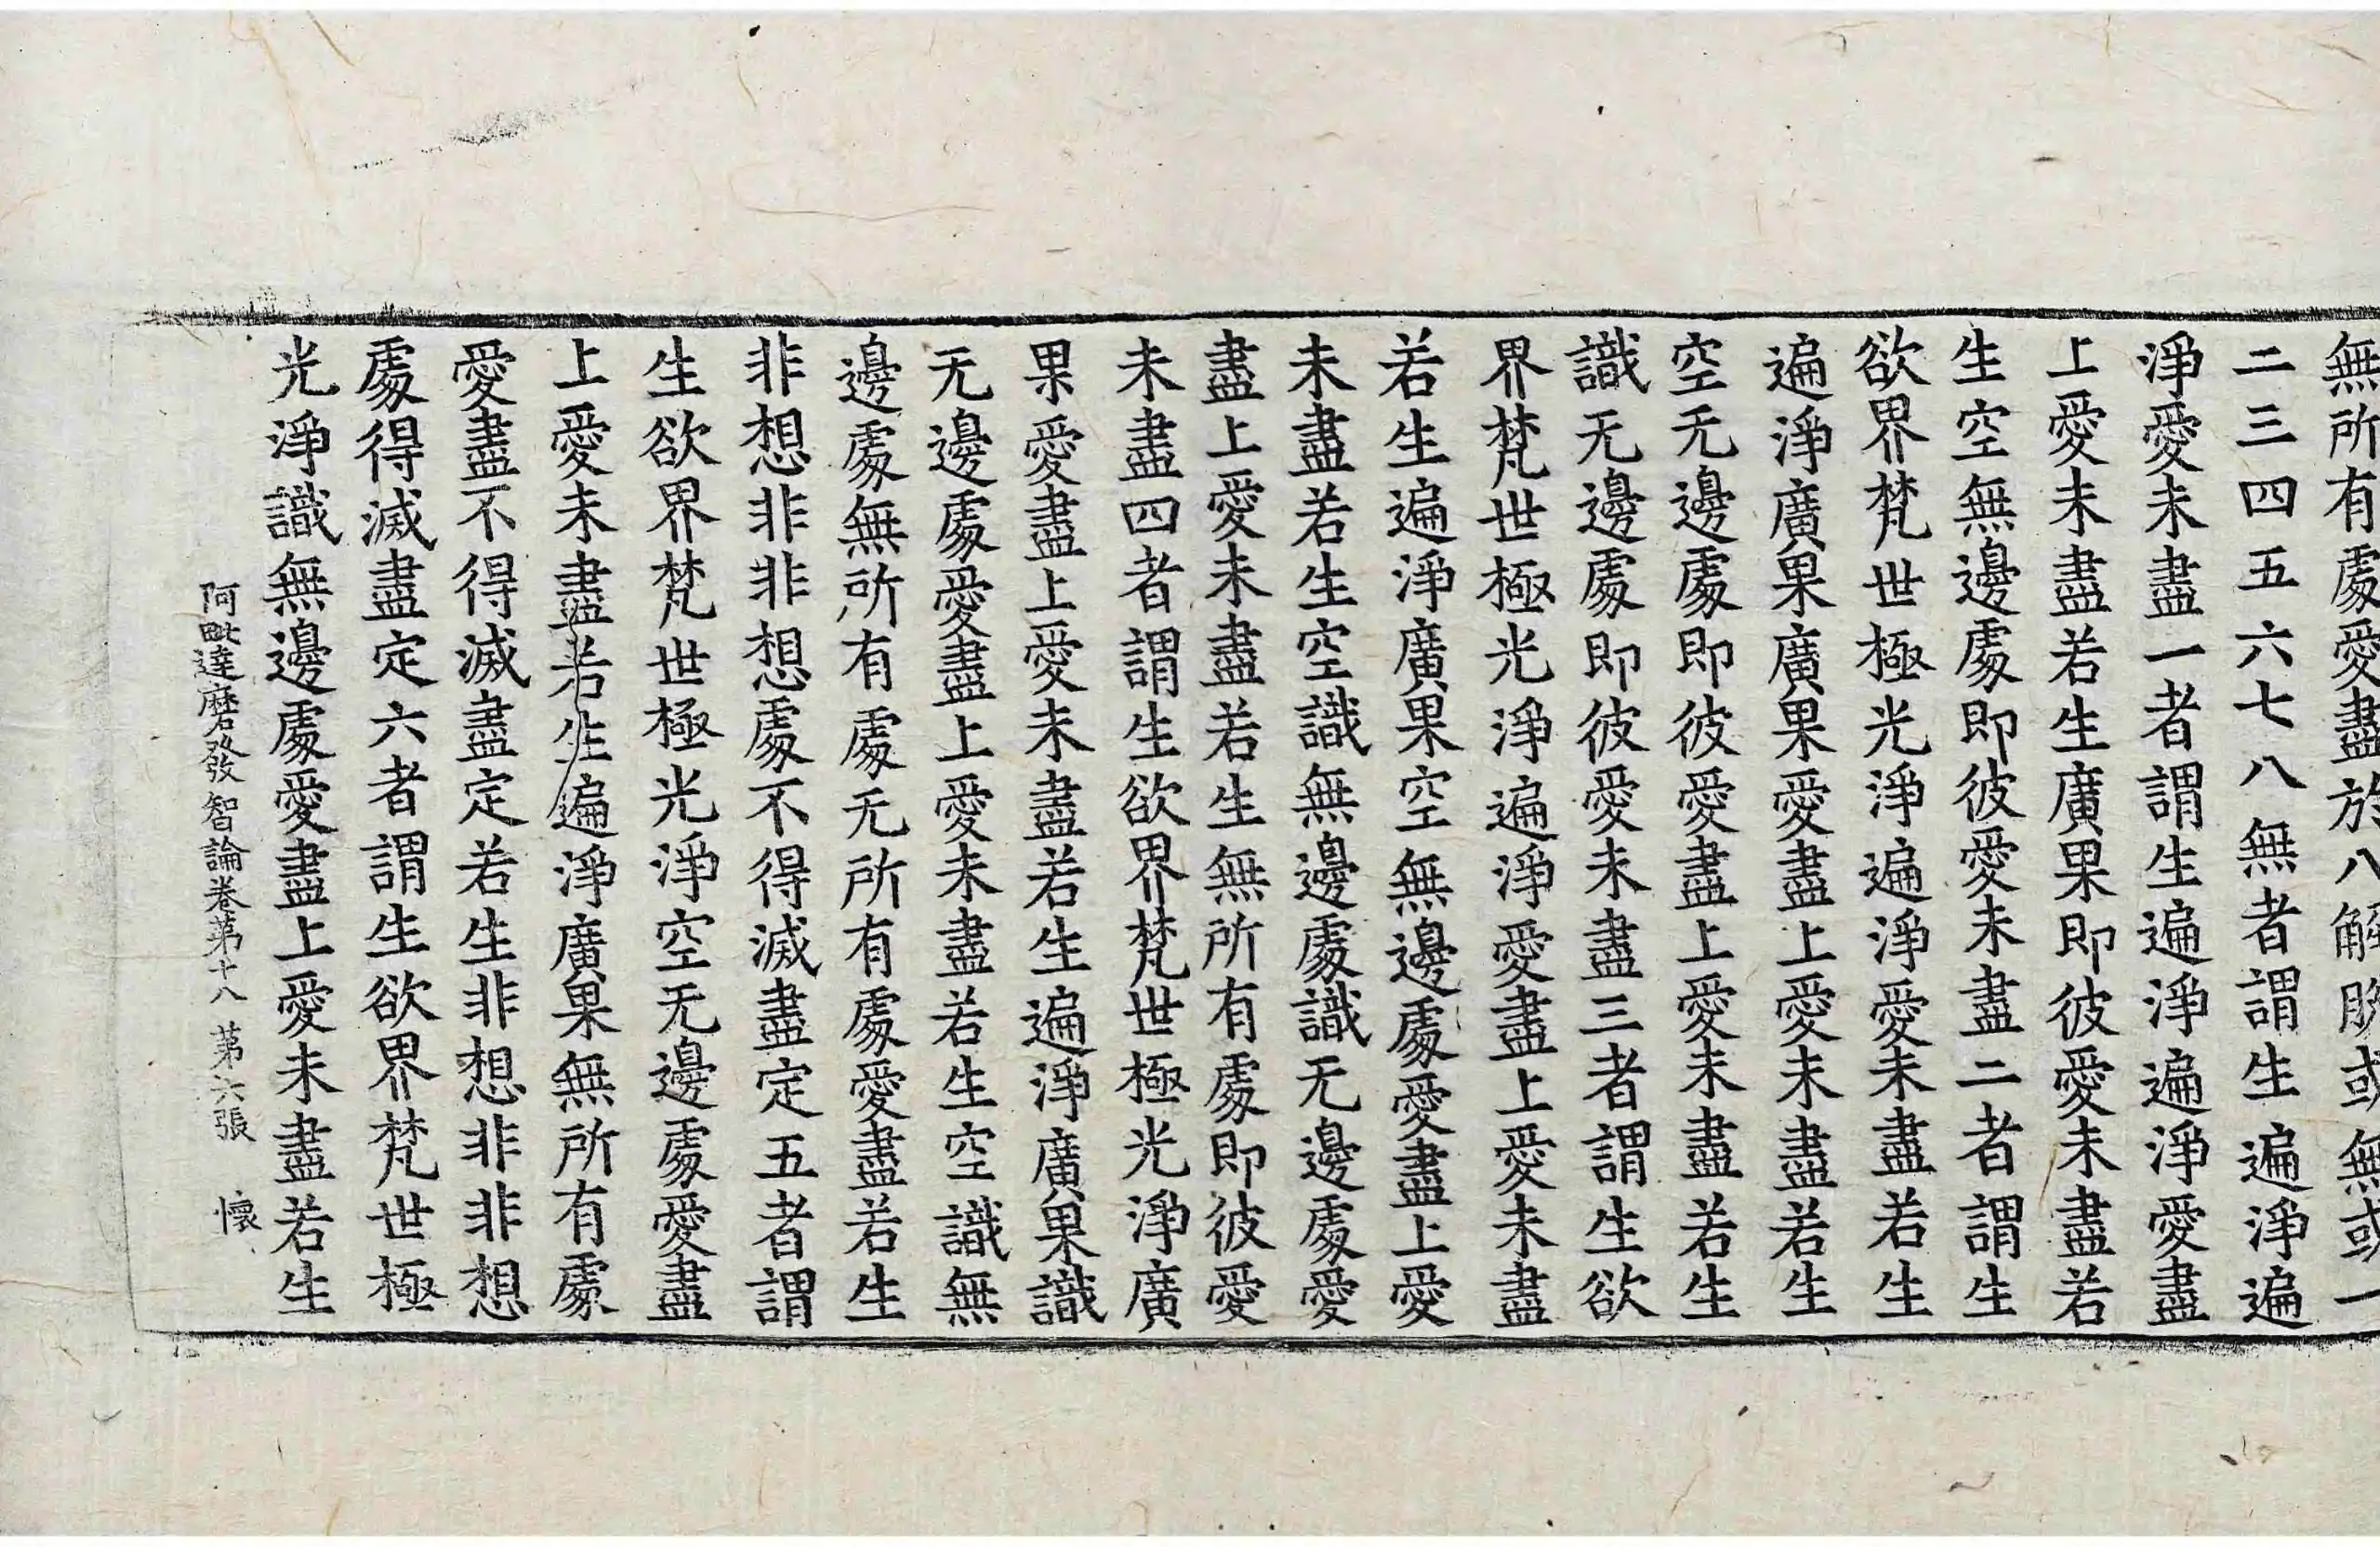 無所有處愛盡於八解脫或無或一
二三四五六七八無者謂生遍淨遍
淨愛未盡一者謂生遍淨遍淨愛盡
上愛未盡若生廣果即彼愛未盡若
生空無邊處即彼愛未盡二者謂生
欲界梵世極光淨遍淨愛未盡若生
遍淨廣果廣果愛盡上愛未盡若生
空无邊處即彼愛盡上愛未盡若生
識无邊處即彼愛未盡三者謂生欲
界梵世極光淨遍淨愛盡上愛未盡
若生遍淨廣果空無邊處愛盡上愛
未盡若生空識無邊處識无邊處愛
盡上愛未盡若生無所有處即彼愛
未盡四者謂生欲界梵世極光淨廣
果愛盡上愛未盡若生遍淨廣果識
无邊處愛盡上愛未盡若生空識無
邊處無所有處无所有處愛盡若生
非想非非想處不得滅盡定五者謂
生欲界梵世極光淨空无邊處愛盡
上愛未盡若生遍淨廣果無所有處
愛盡不得滅盡定若生非想非非想
處得滅盡定六者謂生欲界梵世極
光淨識無邊處愛盡上愛未盡若生
阿毗達磨發智論卷苐十八 苐六張 懷